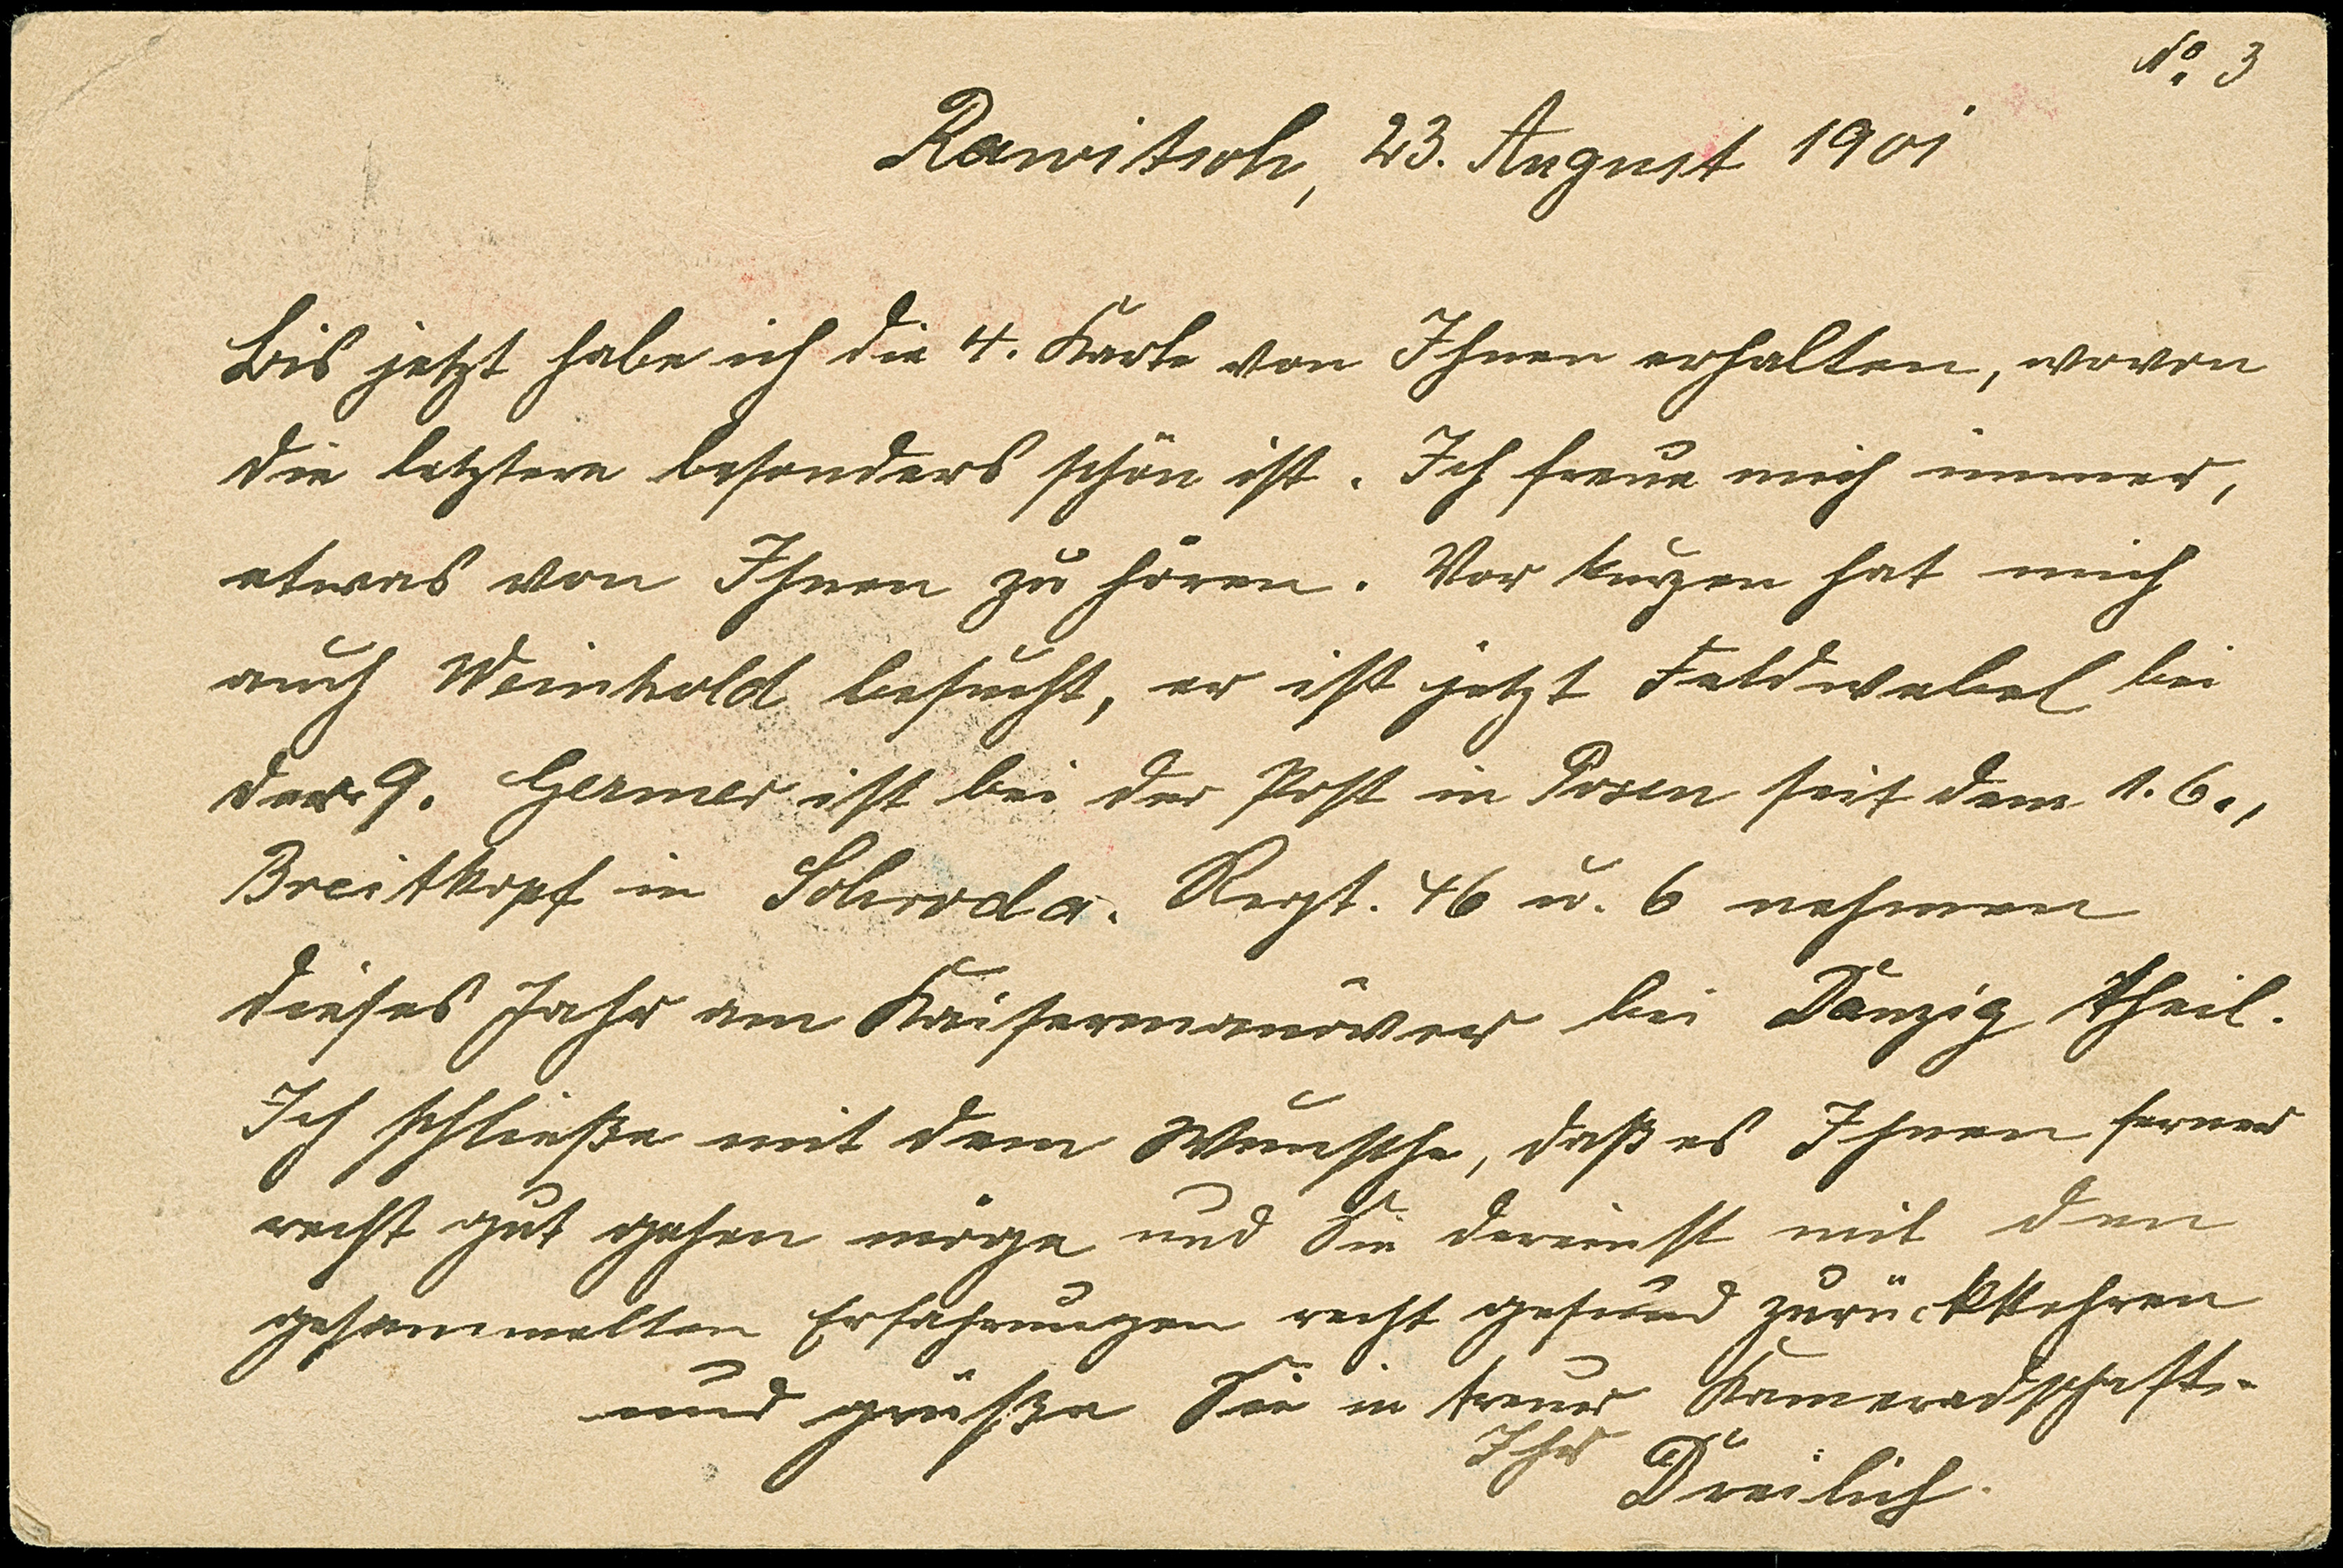 No. 3
Rawitsch, 23. August 1901
Bis jetzt habe ich die 4. Karte von Ihnen erhalten, wovon
die letztere besonders schön ist. Ich freue mich immer,
etwas von Ihnen zu hören. Vor kurzen hat mich
auch Weinhold besucht, er ist jetzt Feldwebel bei
der 9. Germer ist bei der Post in Posen seit dem 1.6.,
Breitkopf in Schroda. Regt. 46 u. 6 nehmen
dieses Jahr am Kaisermanöver bei Danzig theil.
Ich schließe mit dem Wunsche, daß es Ihnen ferner
recht gut gehen möge und Sie dereinst mit den
gesammelten Erfahrungen recht gesund zurückkehren
und grüße Sie in treuer Kameradschaft.
Ihr
Dreilich.